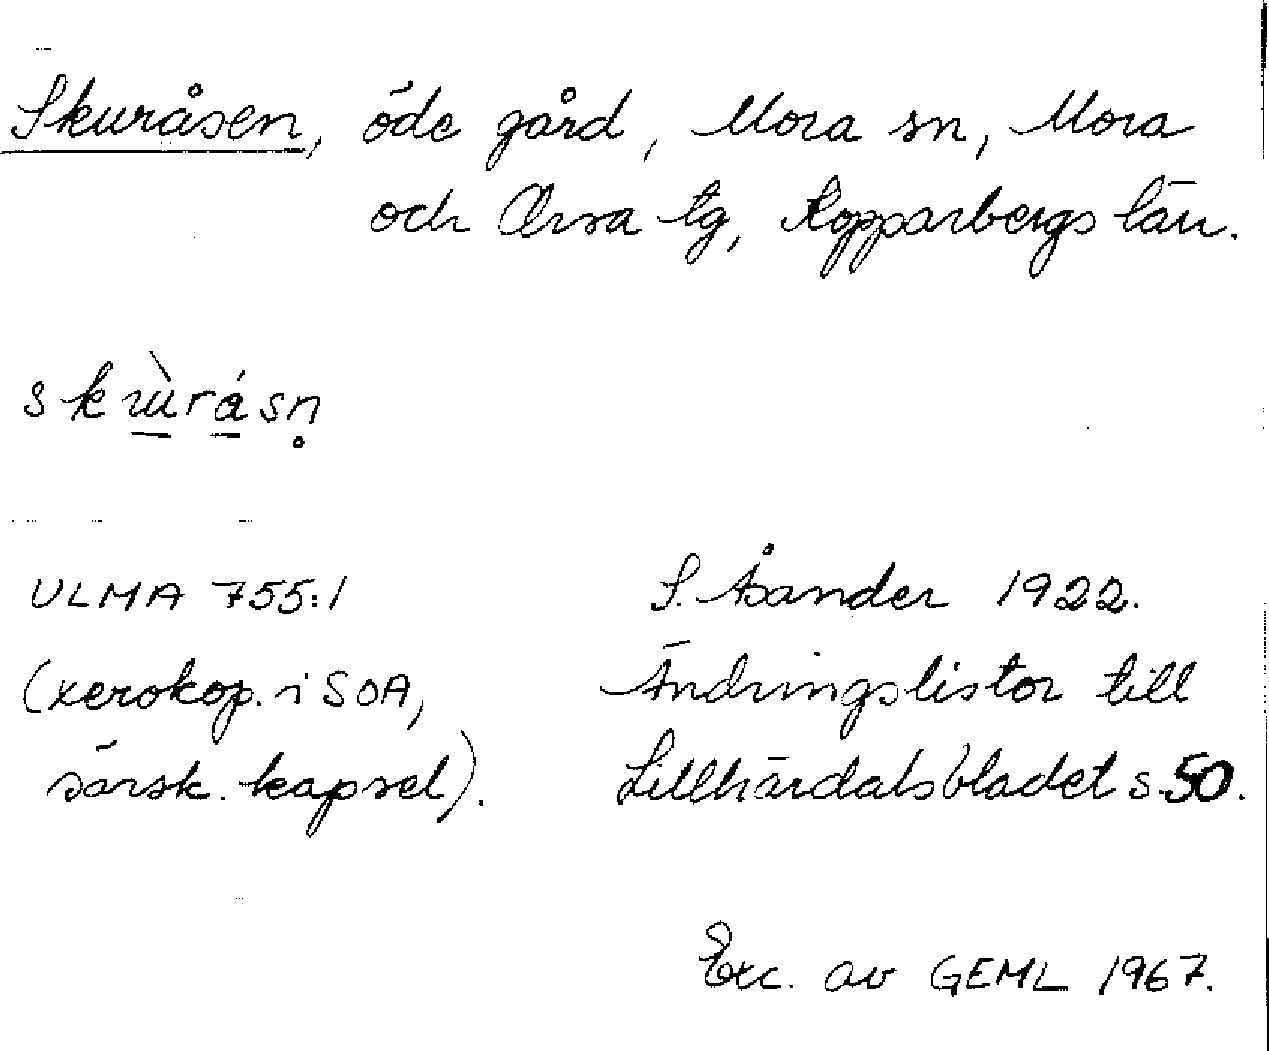 Skuråsen, öde gård, Mora sn, Mora
och Orsa tg, Kopparbergs län.
skùrásn̥
ULMA 755:1
S. Åsander 1922.
(xerokop. i SOA,
Ändringslistor till
särsk. kapsel).
Lillhärdalsbladet s. 50.
Exc. av GEML 1967.